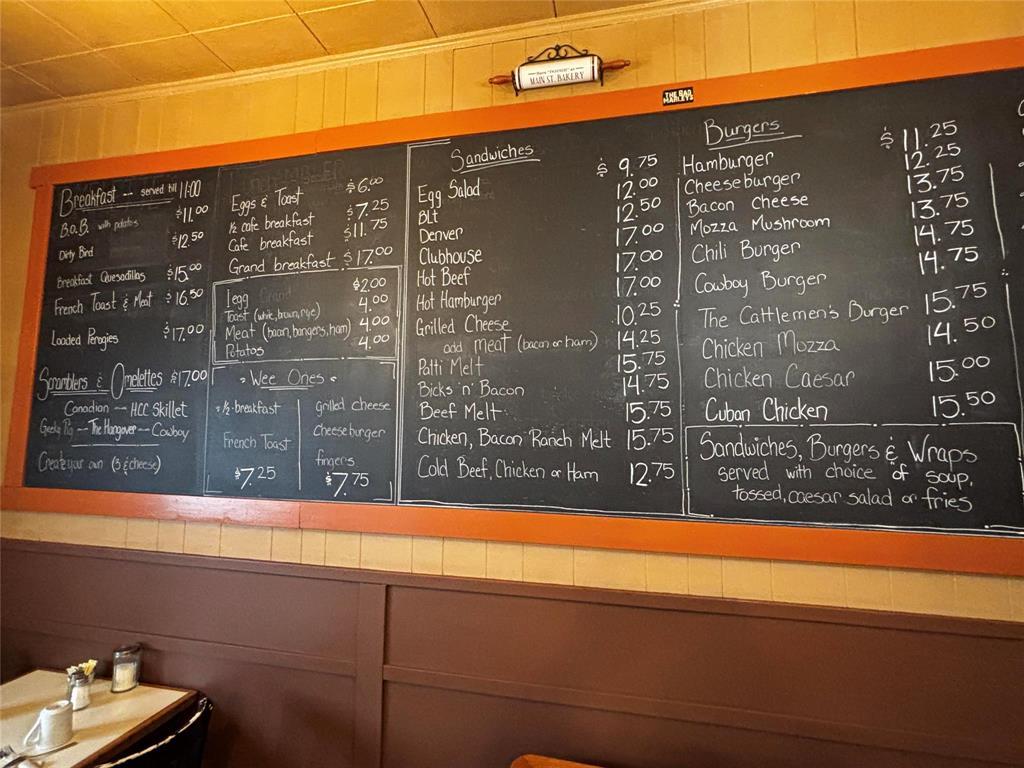 MAIN ST. BAKERY
THE BAD
MARLEYS
Breakfast -- served till 11:00
B.O.B. with potatoes $11.00
Dirty Bird $12.50
Breakfast Quesadillas $15.00
French Toast & Meat $16.50
Loaded Perogies $17.00
Scramblers & Omelettes $17.00
Canadian -- HCC Skillet
Geeky Pig -- The Hangover -- Cowboy
Create your own (5 & cheese)
Eggs & Toast $6.00
½ cafe breakfast $7.25
Cafe breakfast $11.75
Grand breakfast $17.00
1 egg $2.00
Toast (white, brown, rye) 4.00
Meat (bacon, bangers, ham) 4.00
Potatos 4.00
Wee Ones
½ breakfast
French Toast
$7.25
grilled cheese
cheeseburger
fingers
$7.75
Sandwiches
Egg Salad $9.75
Blt 12.00
Denver 12.50
Clubhouse 17.00
Hot Beef 17.00
Hot Hamburger 17.00
Grilled Cheese 10.25
add meat (bacon or ham) 14.25
Patti Melt 15.75
Bicks 'n' Bacon 14.75
Beef Melt 15.75
Chicken, Bacon Ranch Melt 15.75
Cold Beef, Chicken or Ham 12.75
Burgers
Hamburger $11.25
Cheeseburger 12.25
Bacon Cheese 13.75
Mozza Mushroom 13.75
Chili Burger 14.75
Cowboy Burger 14.75
The Cattlemen's Burger 15.75
Chicken Mozza 14.50
Chicken Caesar 15.00
Cuban Chicken 15.50
Sandwiches, Burgers & Wraps
served with choice of soup,
tossed, caesar salad or fries